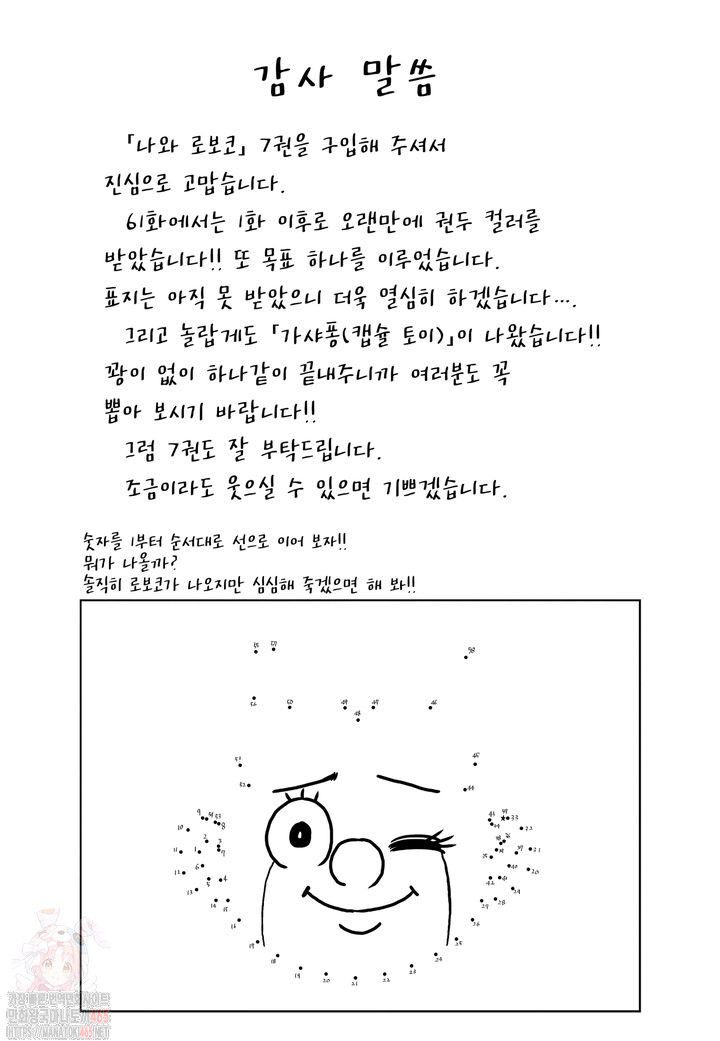 감사 말씀
「나와 로보코」 7권을 구입해 주셔서
진심으로 고맙습니다.
61화에서는 1화 이후로 오랜만에 권두 컬러를
받았습니다!! 또 목표 하나를 이루었습니다.
표지는 아직 못 받았으니 더욱 열심히 하겠습니다….
그리고 놀랍게도 「가샤퐁(캡슐 토이)」이 나왔습니다!!
꽝이 없이 하나같이 끝내주니까 여러분도 꼭
뽑아 보시기 바랍니다!!
그럼 7권도 잘 부탁드립니다.
조금이라도 웃으실 수 있으면 기쁘겠습니다.
숫자를 1부터 순서대로 선으로 이어 보자!!
뭐가 나올까?
솔직히 로보코가 나오지만 심심해 죽겠으면 해 봐!!
58
50 49 47 46
48
45
52
44
9
10
33
22
2
11
7
21
12
6
20
13
5 4
42 41
14 15
29 28
16
27
26
25
24
18
19 20 21 22 23
가장 빠른 번역만화사이트
만화왕국마나토끼465
HTTPS://MANATOKI465.NET